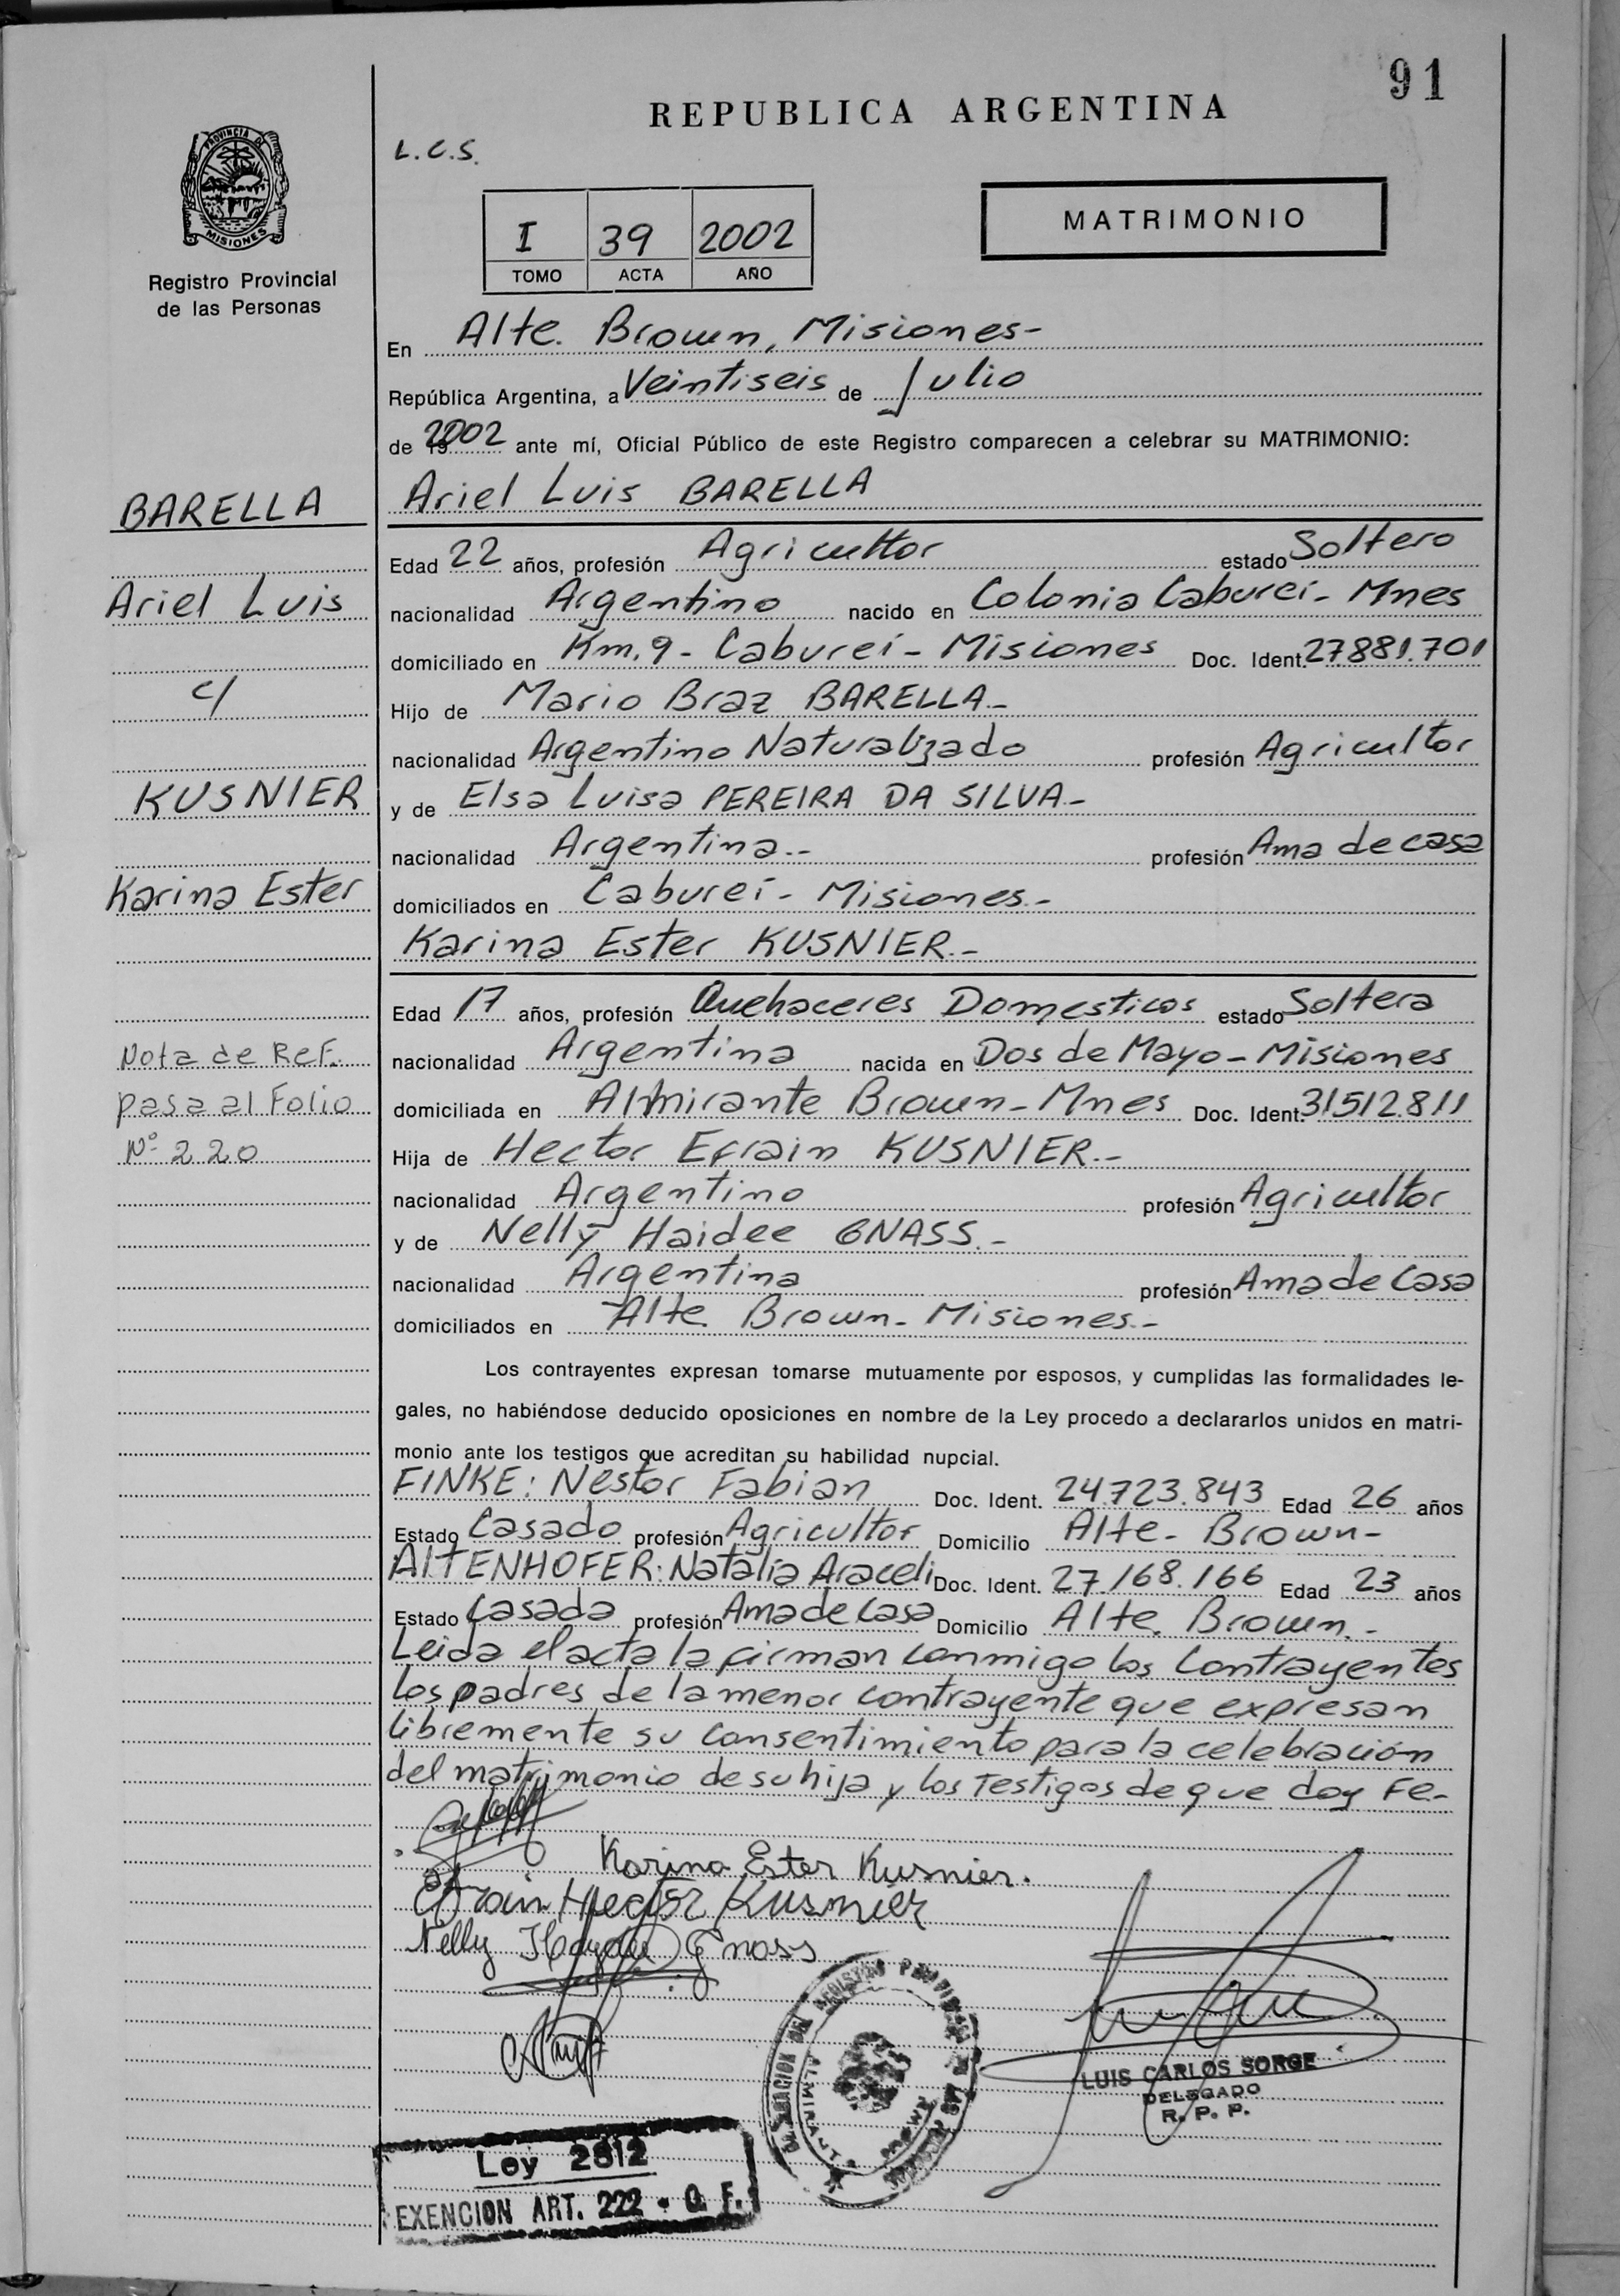 91
REPUBLICA ARGENTINA
L.C.S.
PROVINCIA DE
MISIONES
Registro Provincial
de las Personas
I 39 2002
TOMO ACTA AÑO
MATRIMONIO
En Alte. Brown, Misiones-
República Argentina, a Veintiseis de Julio
de 2002 ante mí, Oficial Público de este Registro comparecen a celebrar su MATRIMONIO:
BARELLA
Ariel Luis
c/
KUSNIER
Karina Ester
Nota de Ref.
pasa al Folio
Nº 220
Ariel Luis BARELLA
Edad 22 años, profesión Agricultor estado Soltero
nacionalidad Argentino nacido en Colonia Cabureí - Mnes
domiciliado en Km. 9 - Cabureí - Misiones Doc. Ident. 27881.701
Hijo de Mario Braz BARELLA.-
nacionalidad Argentino Naturalizado profesión Agricultor
y de Elsa Luisa PEREIRA DA SILVA.-
nacionalidad Argentina.- profesión Ama de casa
domiciliados en Cabureí - Misiones.-
Karina Ester KUSNIER.-
Edad 17 años, profesión Quehaceres Domesticos estado Soltera
nacionalidad Argentina nacida en Dos de Mayo - Misiones
domiciliada en Almirante Brown - Mnes Doc. Ident. 31512.811
Hija de Hector Efrain KUSNIER.-
nacionalidad Argentino profesión Agricultor
y de Nelly Haidee GNASS.-
nacionalidad Argentina profesión Ama de Casa
domiciliados en Alte. Brown - Misiones.-
Los contrayentes expresan tomarse mutuamente por esposos, y cumplidas las formalidades le-
gales, no habiéndose deducido oposiciones en nombre de la Ley procedo a declararlos unidos en matri-
monio ante los testigos que acreditan su habilidad nupcial.
FINKE: Nestor Fabian Doc. Ident. 24723.843 Edad 26 años
Estado Casado profesión Agricultor Domicilio Alte - Brown -
ALTENHOFER: Natalia Araceli Doc. Ident. 27.168.166 Edad 23 años
Estado Casada profesión Ama de Casa Domicilio Alte. Brown.-
Leida el acta la firman conmigo los Contrayentes
los padres de la menor contrayente que expresan
libremente su consentimiento para la celebración
del matrimonio de su hija y los Testigos de que doy Fe.-
Karina Ester Kusnier.
Efrain Hector Kusnier
Nelly Haydee Gnass
LUIS CARLOS SORGE
DELEGADO
R. P. P.
Ley 2812
EXENCION ART. 222 - C. F.